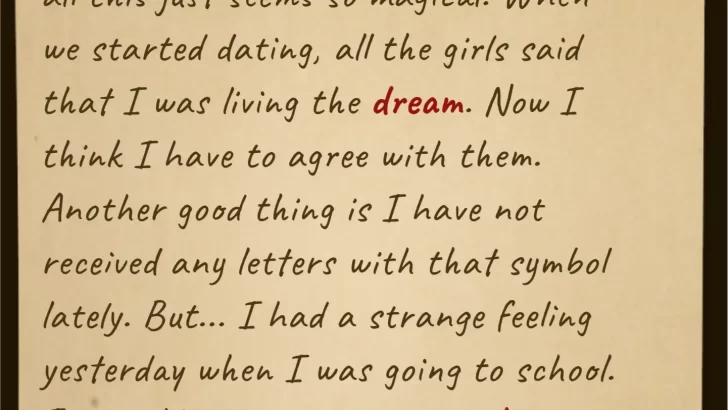 all this just seems so magical. When
we started dating, all the girls said
that I was living the dream. Now I
think I have to agree with them.
Another good thing is I have not
received any letters with that symbol
lately. But... I had a strange feeling
yesterday when I was going to school.